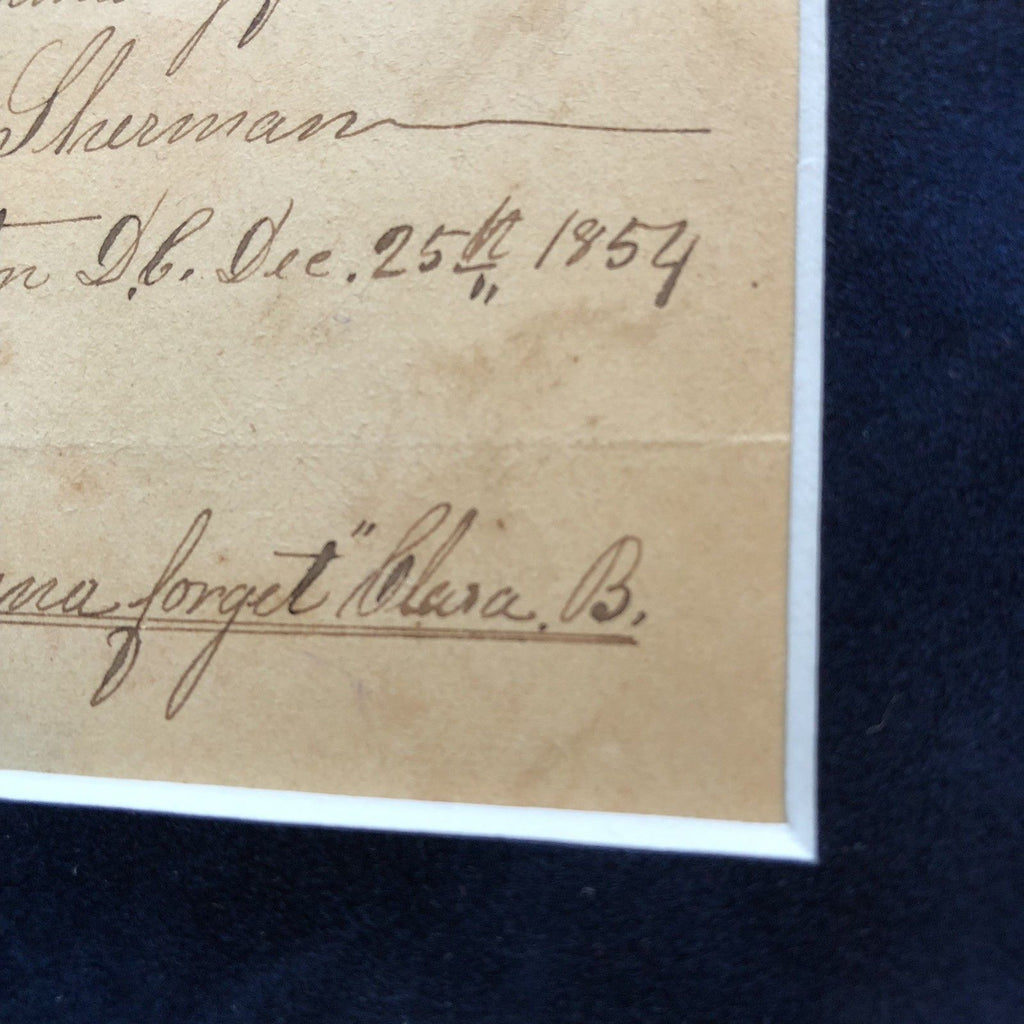 Sherman
n D.C. Dec. 25th 1854
na forget" Clara. B.